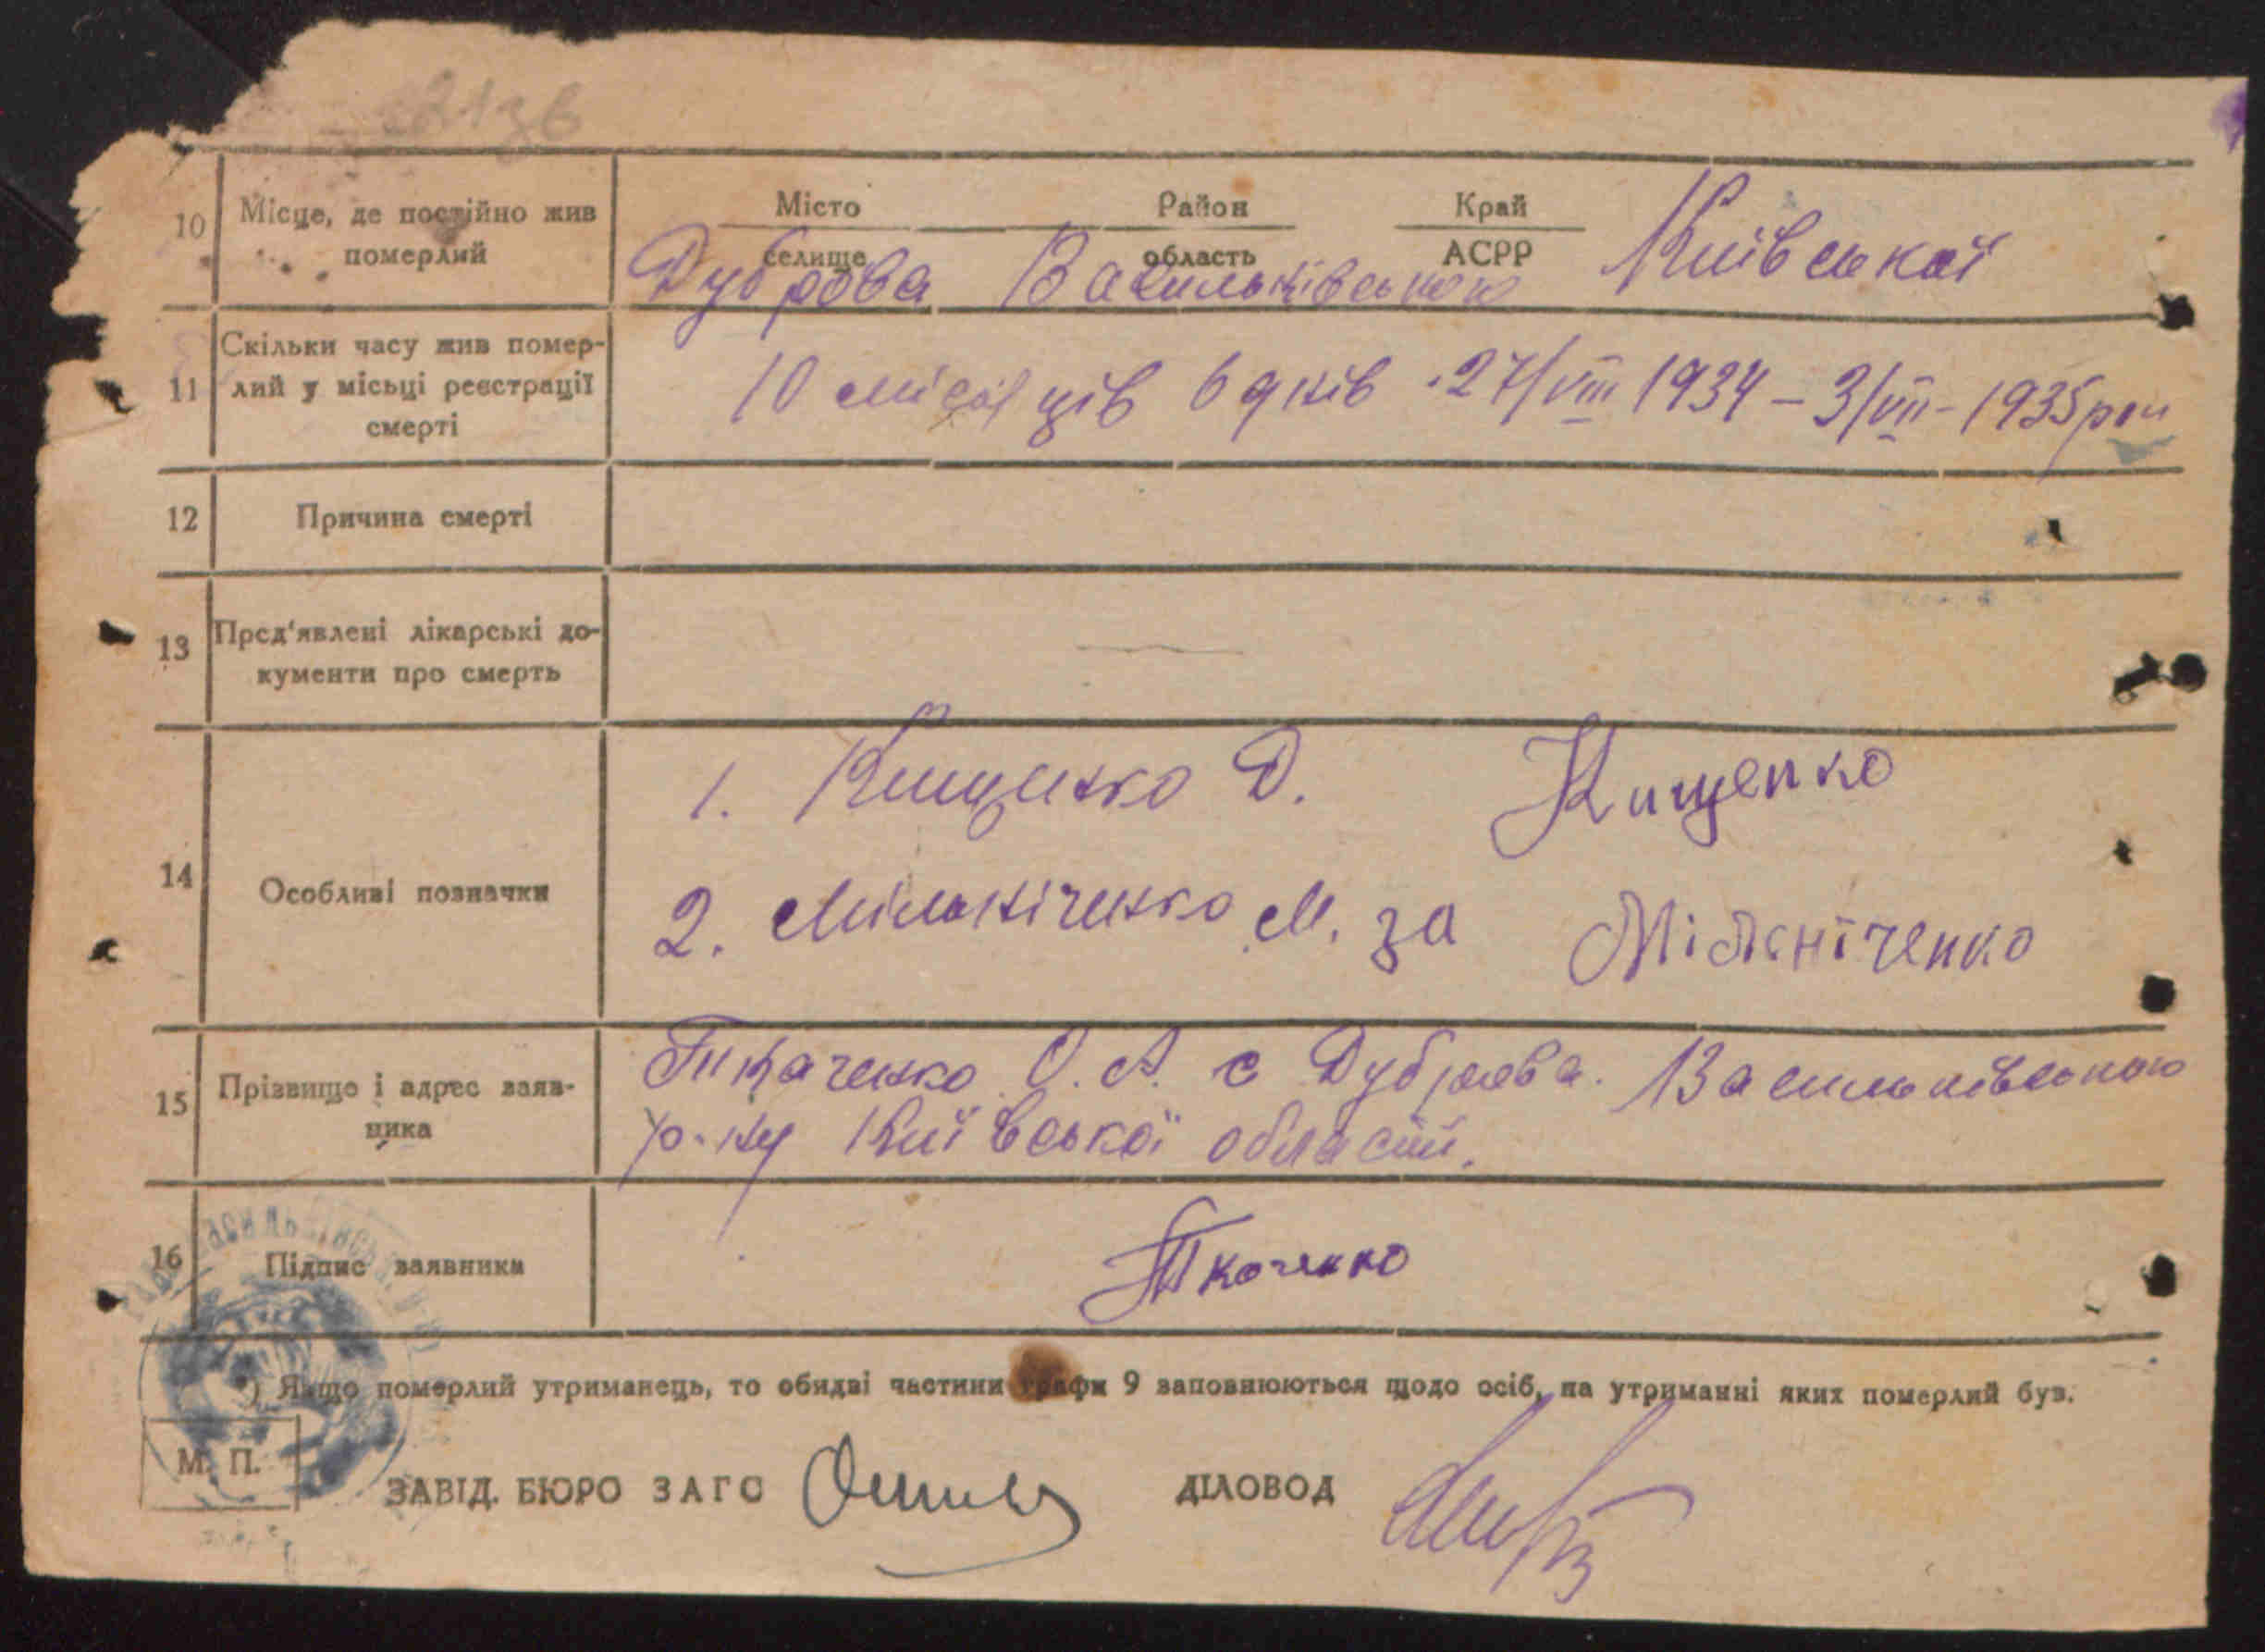 10 Місце, де постійно жив померлий
Місто Район Край
селище область АСРР
Дуброва Васильківського Київської
11 Скільки часу жив помер-
лий у місьці реєстрації
смерті
10 місяців 6 днів 27/VIII 1934 – 3/VII – 1935 рок
12 Причина смерті
13 Пред'явлені лікарські до-
кументи про смерть
14 Особливі позначки
1. Кищенко Д. Кищенко
2. Мільніченко М. за Мільніченко
15 Прізвище і адрес заяв-
ника
Ткаченко О. А. с Дуброва. Васильківського
р-ну Київської області.
16 Підпис заявника
Ткаченко
*) Якщо померлий утриманець, то обидві частини графи 9 заповнюються щодо осіб, на утриманні яких померлий був.
М. П.
ЗАВІД. БЮРО ЗАГС ДІЛОВОД